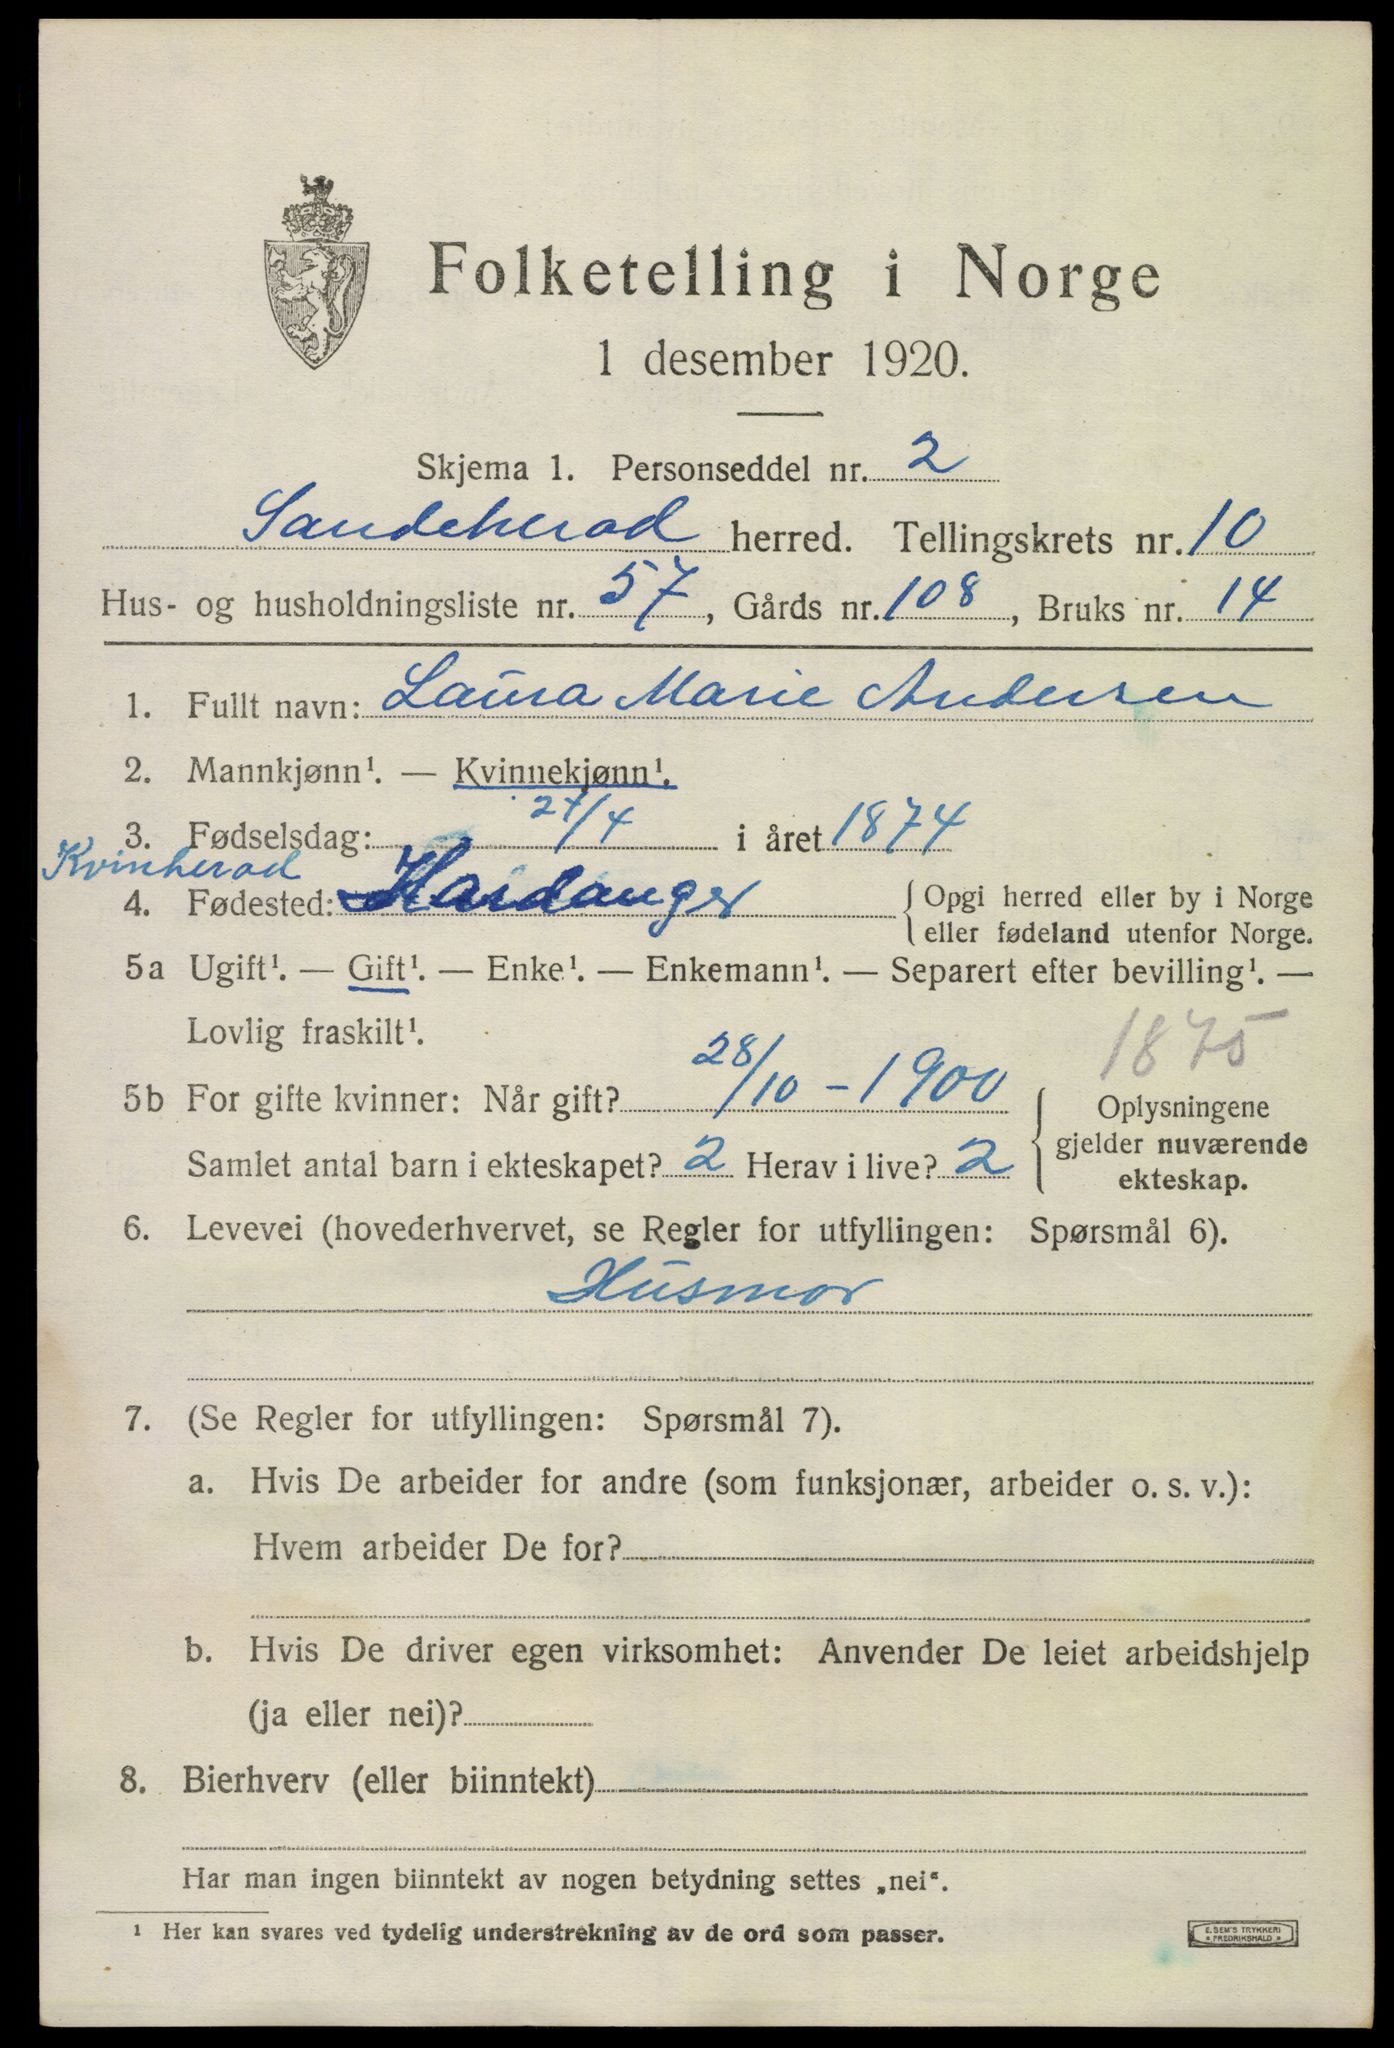 Folketelling i Norge
1 desember 1920.
Skjema 1. Personseddel nr. 2
Sandeherad herred. Tellingskrets nr. 10
Hus- og husholdningsliste nr. 57, Gårds nr. 108, Bruks nr. 14
1. Fullt navn: Laura Marie Andersen
2. Mannkjønn¹. — Kvinnekjønn¹.
3. Fødselsdag: 27/4 i året 1874
Kvinherad
4. Fødested: Hardanger { Opgi herred eller by i Norge
eller fødeland utenfor Norge.
5a Ugift¹. — Gift¹. — Enke¹. — Enkemann¹. — Separert efter bevilling¹. —
Lovlig fraskilt¹.
1875
5b For gifte kvinner: Når gift? 28/10 - 1900 { Oplysningene
gjelder nuværende
ekteskap.
Samlet antal barn i ekteskapet? 2 Herav i live? 2
6. Levevei (hovederhvervet, se Regler for utfyllingen: Spørsmål 6).
Husmor
7. (Se Regler for utfyllingen: Spørsmål 7).
a. Hvis De arbeider for andre (som funksjonær, arbeider o. s. v.):
Hvem arbeider De for?
b. Hvis De driver egen virksomhet: Anvender De leiet arbeidshjelp
(ja eller nei)?
8. Bierhverv (eller biinntekt)
Har man ingen biinntekt av nogen betydning settes „nei“.
¹ Her kan svares ved tydelig understrekning av de ord som passer.
E. SEM'S TRYKKERI
FREDRIKSHALD